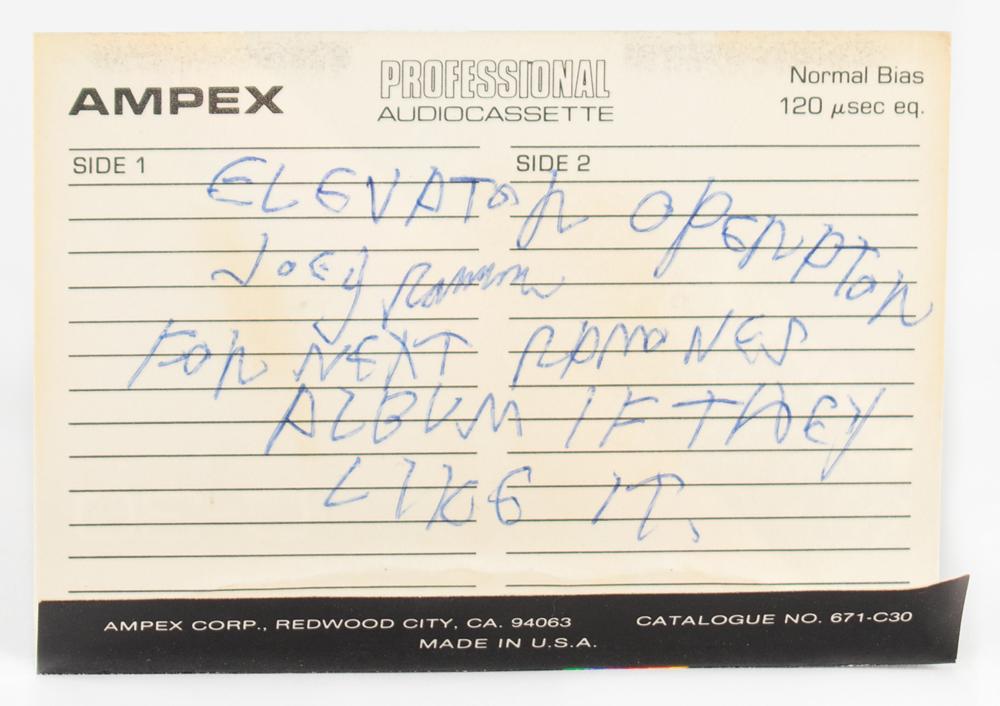 AMPEX
PROFESSIONAL
AUDIOCASSETTE
Normal Bias
120 µsec eq.
SIDE 1
SIDE 2
ELEVATOR OPERATOR
JOEY Ramone
FOR NEXT RAMONES
ALBUM IF THEY
LIKE IT.
AMPEX CORP., REDWOOD CITY, CA. 94063
CATALOGUE NO. 671-C30
MADE IN U.S.A.